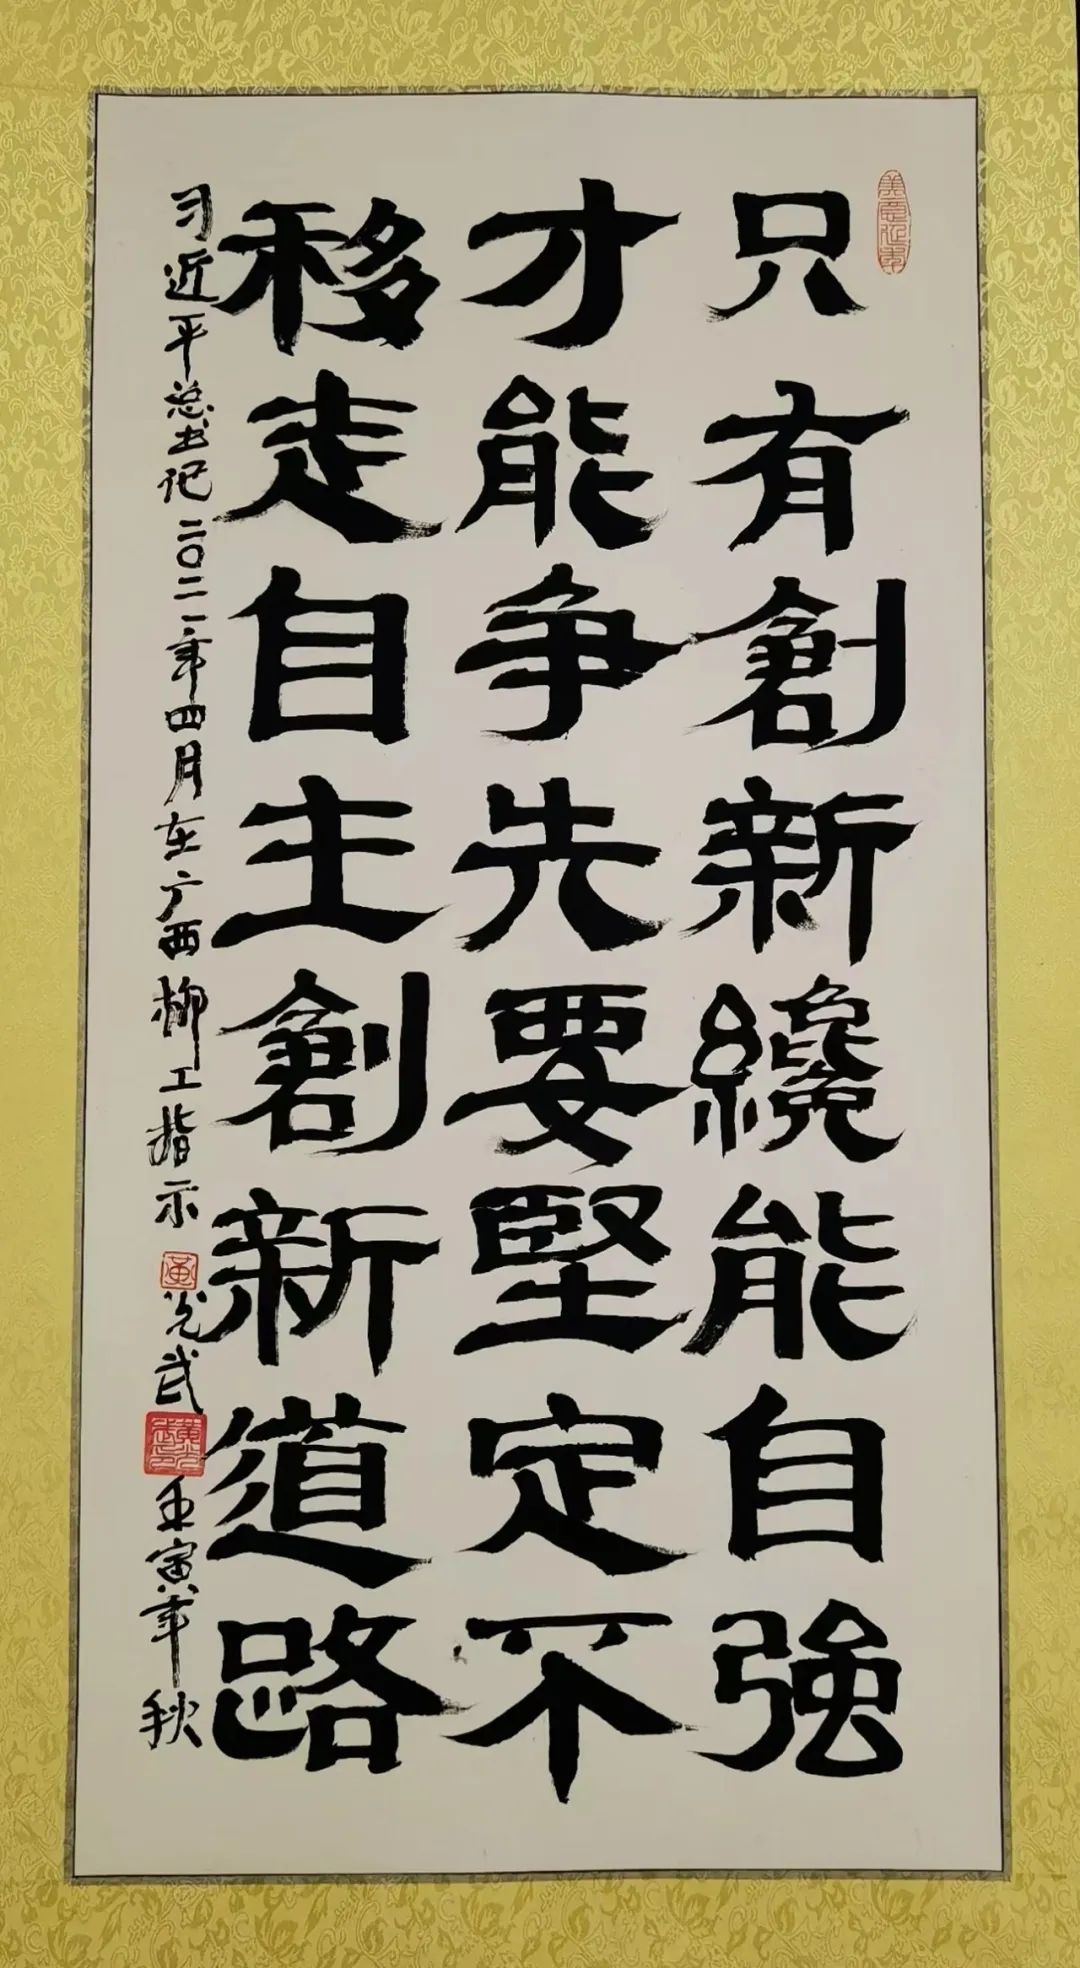 只有創新纔能自強
才能争先要堅定不
移走自主創新道路
习近平总书记二〇二一年四月在广西柳工指示
黄光武
壬寅年秋